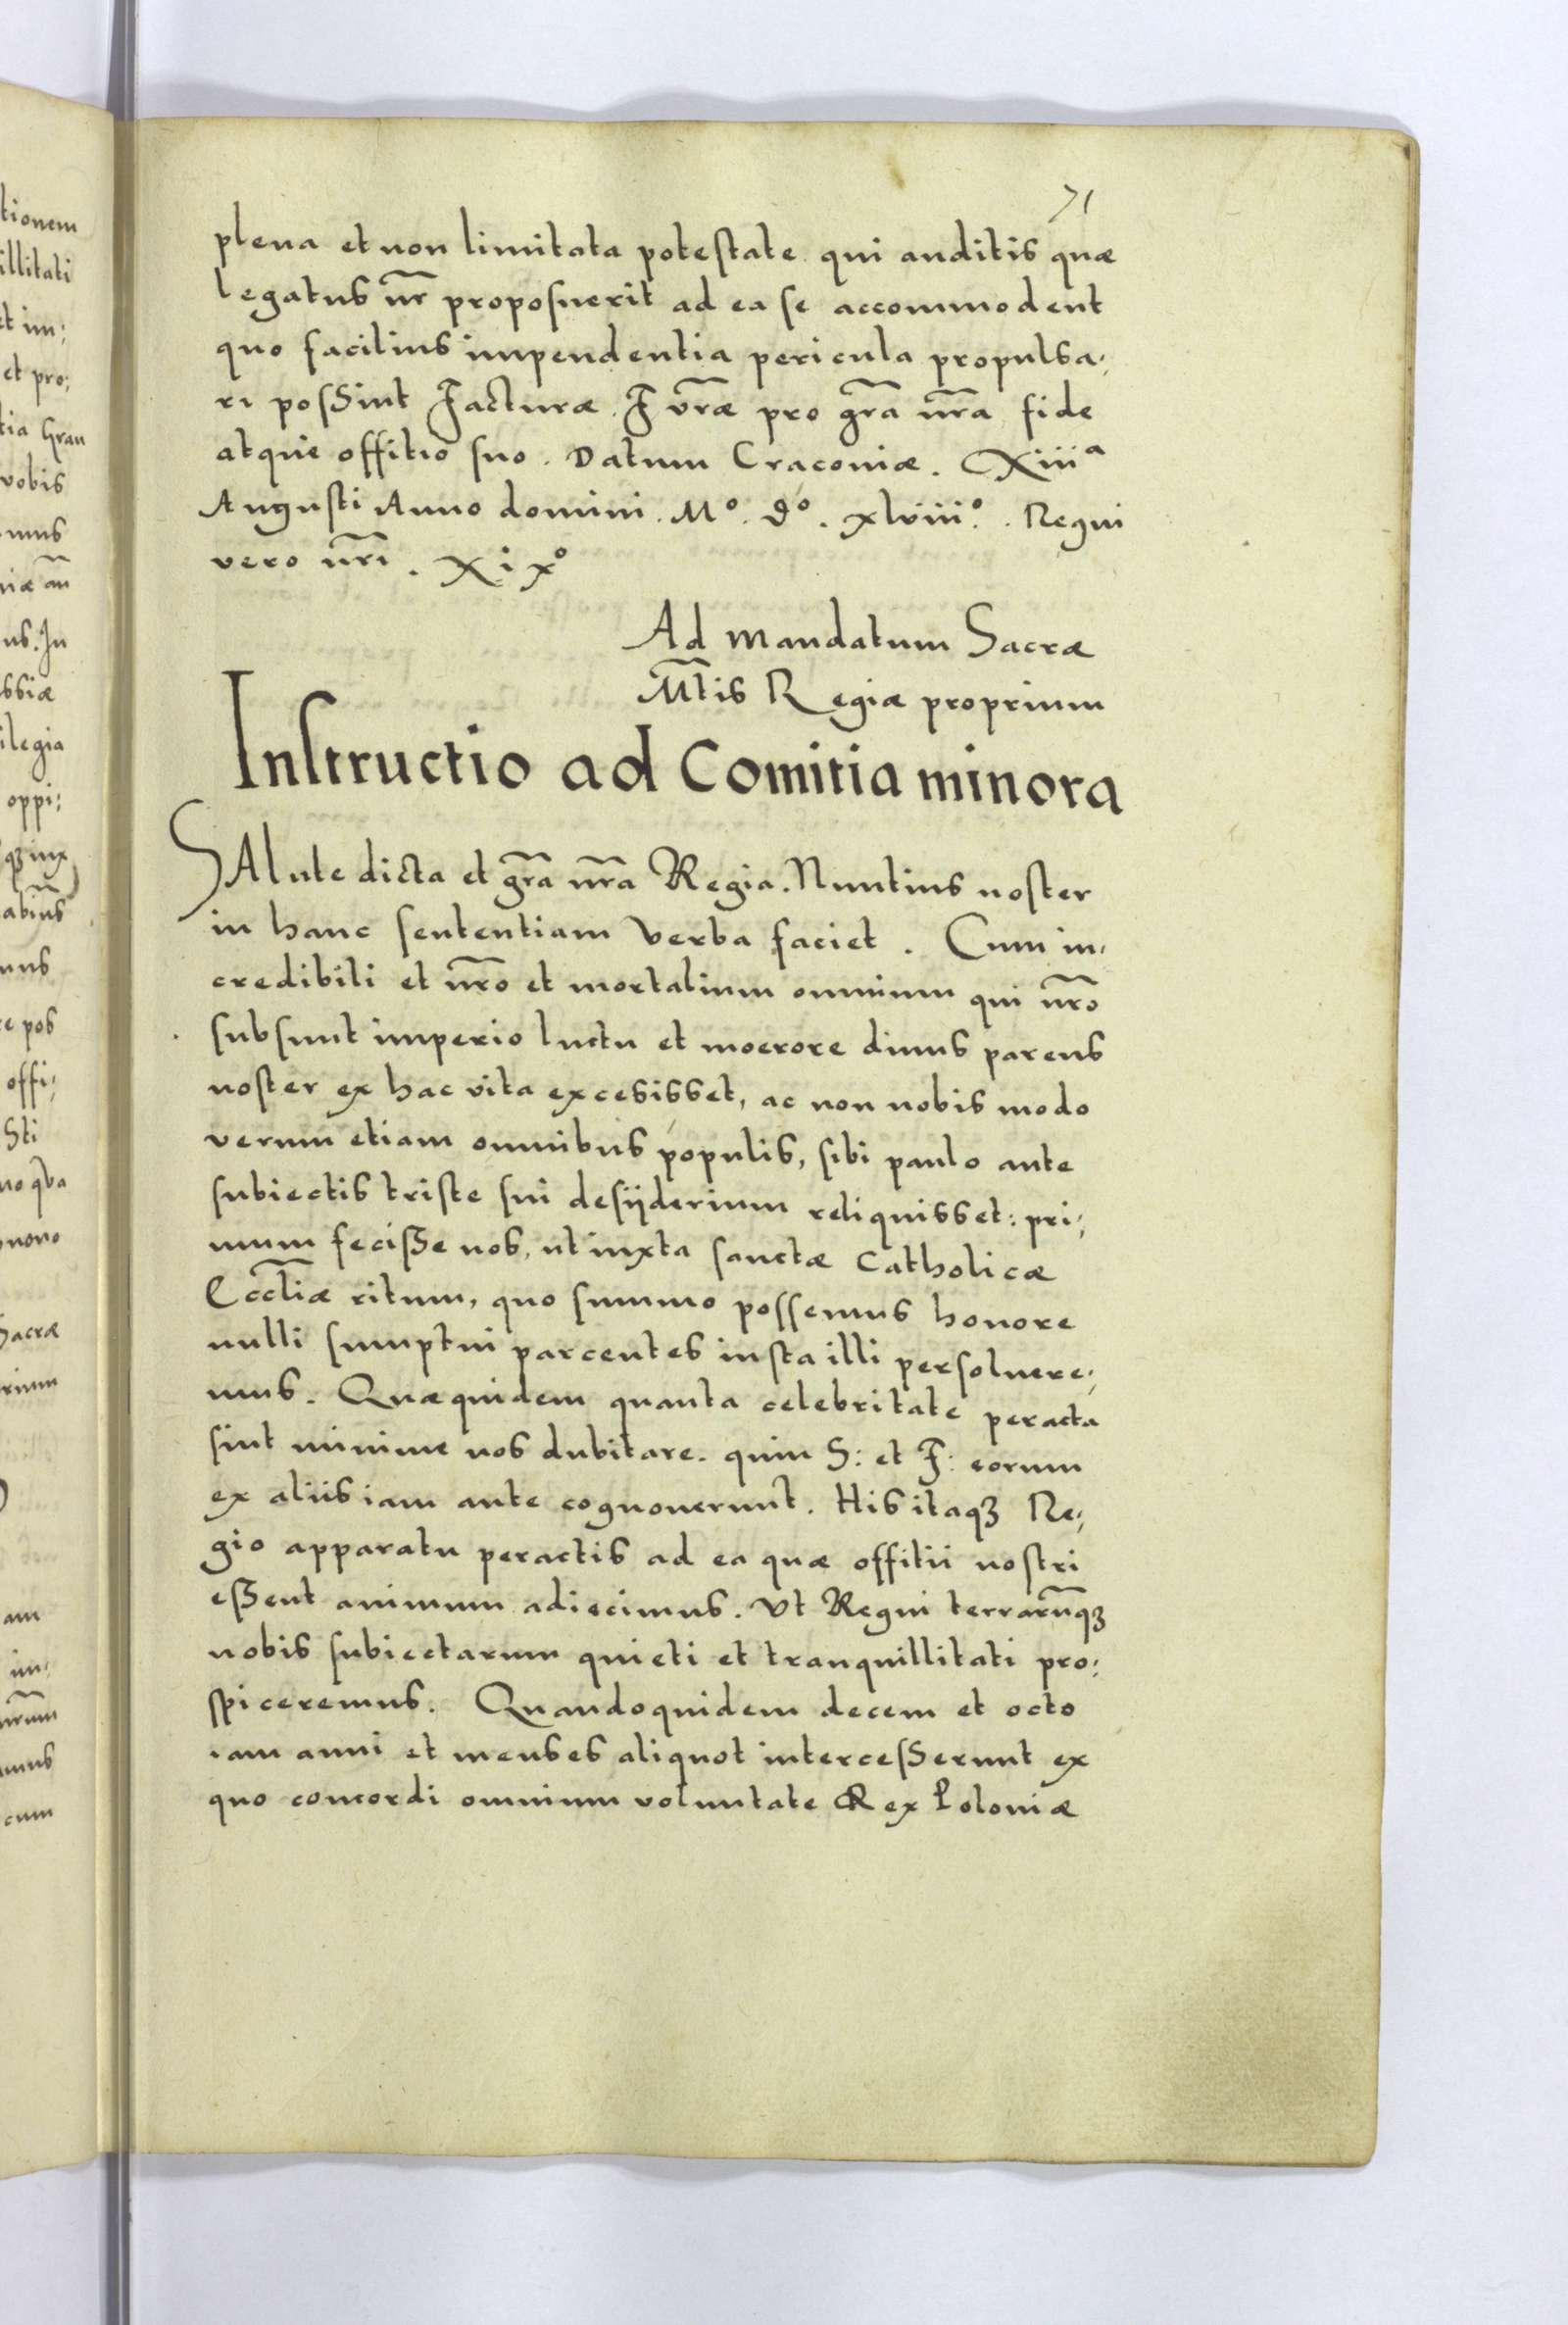 71
plena et non limitata potestate qui auditis quæ
legatus nr̃ proposuerit ad ea se accommodent
quo facilius impendentia pericula propulsa,
ri possint Facturæ F vr̃æ pro gr̃a nr̃a fide
atque offitio suo. Datum Cracoviæ. Xiiiᵃ
Augusti Anno domini. Mº. dº. xlviiiº. Regni
vero nr̃i. Xixº
Ad mandatum Sacræ
Mt̃is Regiæ proprium
Instructio ad Comitia minora
SAlute dicta et gr̃a nr̃a Regia. Nuntius noster
in hanc sententiam verba faciet. Cum in,
credibili et nr̃o et mortalium omnium qui nr̃o
subsunt imperio luctu et moerore divus parens
noster ex hac vita excesisset, ac non nobis modo
verum etiam omnibus populis, sibi paulo ante
subiectis triste sui desijderium reliquisset: pri;
mum fecisse nos, ut iuxta sanctæ Catholicæ
Eccl̃iæ ritum, quo summo possemus honore
nulli sumptui parcentes iusta illi persolvere;
mus. Quæ quidem quanta celebritate peracta
sint minime nos dubitare. quin S: et F: eorum
ex aliis iam ante cognoverunt. His itaqȝ Re;
gio apparatu peractis ad ea quæ offitii nostri
essent animum adiecimus. Vt Regni terrarũqȝ
nobis subiectarum quieti et tranquillitati pro:
spiceremus. Quandoquidem decem et octo
iam anni et menses aliquot intercesserunt ex
quo concordi omnium voluntate Rex Poloniæ
tionem
illitati
et im;
et pro;
tia Gran
vobis
mus
us. In
ssiæ
ilegia
oppi:
mus
e pos
offi;
Sti
novo
Sacræ
rium
am
im;
mus
cum